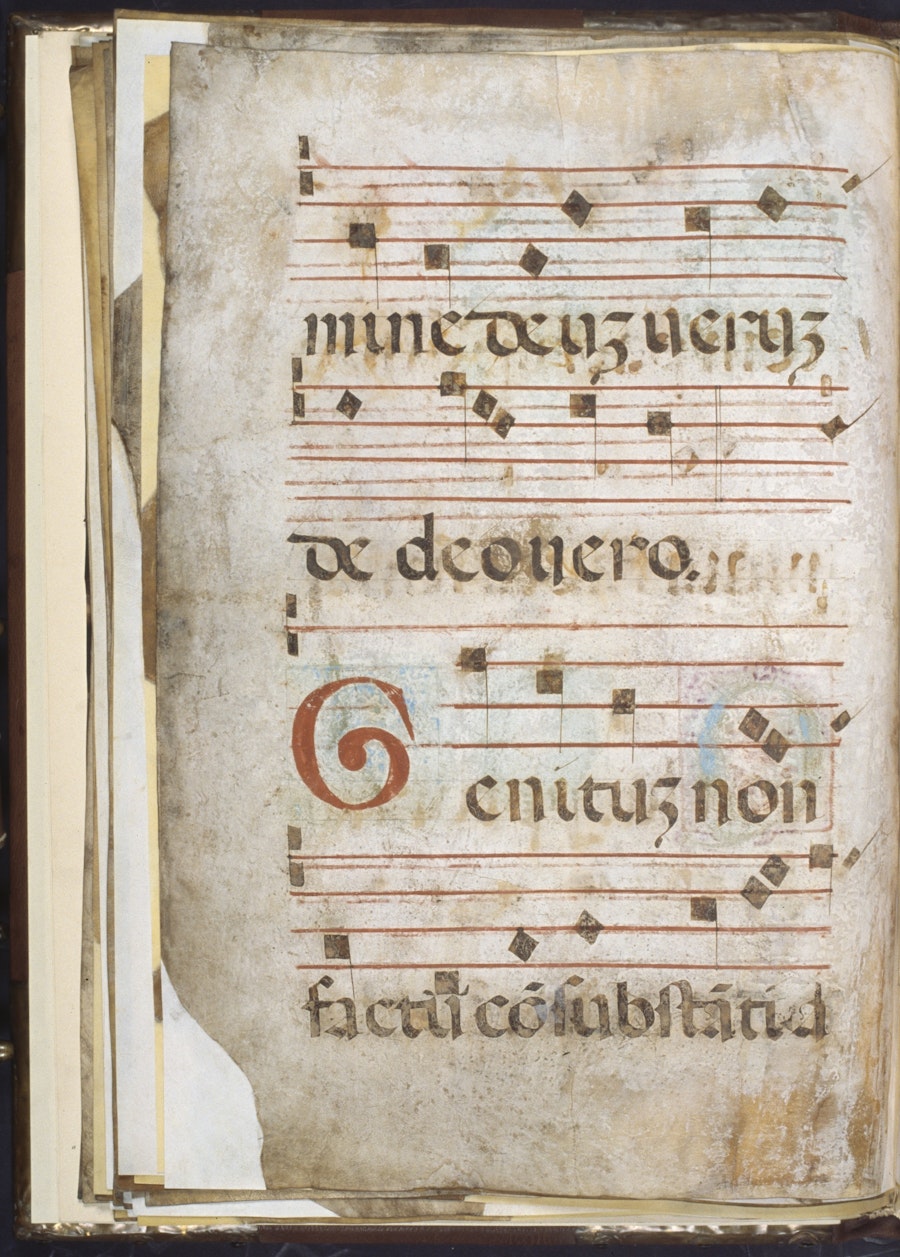 mine deuz ueruz
de deo uero.
Genituz non
factū cōsubstātia